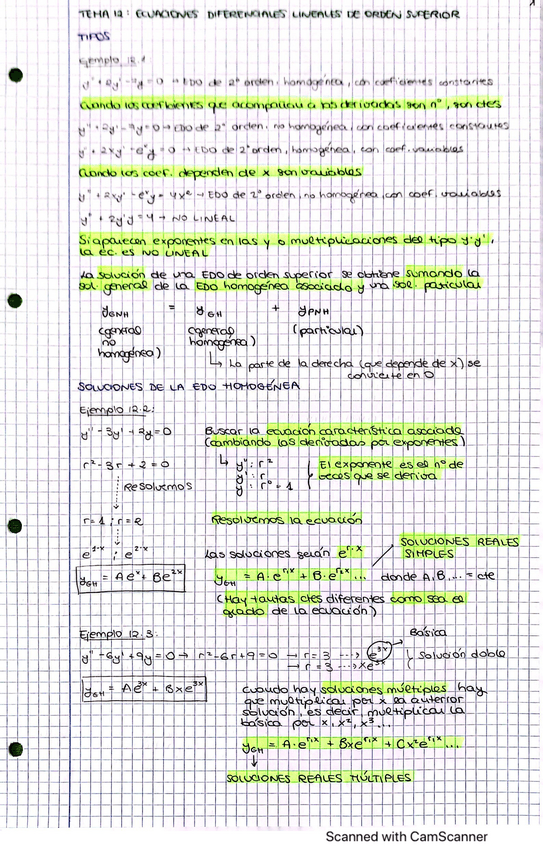 1
TEMA 12: ECUACIONES DIFERENCIALES LINEALES DE ORDEN SUPERIOR
TIPOS
Ejemplo 12.1
→ EDO de 2º orden, homogénea, con coeficientes constantes
Cuando los coeficientes que acompañan a las derivadas son nº, son ctes
→ EDO de 2º orden, no homogénea, con coeficientes constantes
→ EDO de 2º orden, homogénea, con coef. variables
Cuando los coef. dependen de x son variables
→ EDO de 2º orden, no homogénea, con coef. variables
y'' + 2y'y = 4 → NO LINEAL
Si aparecen exponentes en las y o multiplicaciones del tipo y·y',
la ec. es NO LINEAL
La solución de una EDO de orden superior se obtiene sumando la
sol. general de la EDO homogénea asociada y una sol. particular
y_GNH = y_GH + y_PNH
(general (general (particular)
no homogénea)
homogénea)
↳ La parte de la derecha (que depende de x) se
convierte en 0
SOLUCIONES DE LA EDO HOMOGÉNEA
Ejemplo 12.2:
y'' - 3y' + 2y = 0 Buscar la ecuación característica asociada
(cambiando las derivadas por exponentes)
r² - 3r + 2 = 0 ↳ y'': r² El exponente es el nº de
y': r veces que se deriva
y: r⁰ = 1
RESOLVEMOS
r = 1 ; r = 2 Resolvemos la ecuación
e^1·x ; e^2·x Las soluciones serán e^r·x SOLUCIONES REALES
SIMPLES
y_GH = Ae^x + Be^2x y_GH = A·e^r₁x + B·e^r₂x ... donde A, B, ... = cte
(Hay tantas ctes diferentes como sea el
grado de la ecuación)
Ejemplo 12.3: Básica
y'' - 6y' + 9y = 0 → r² - 6r + 9 = 0 → r = 3 ⋯› e^3x Solución doble
→ r = 3 ⋯› xe^3x
y_GH = Ae^3x + Bxe^3x cuando hay soluciones múltiples hay
que multiplicar por x la anterior
solución, es decir, multiplicar la
básica por x, x², x³...
y_GH = A·e^r₁x + Bxe^r₁x + Cx²e^r₁x ...
SOLUCIONES REALES MÚLTIPLES
Scanned with CamScanner